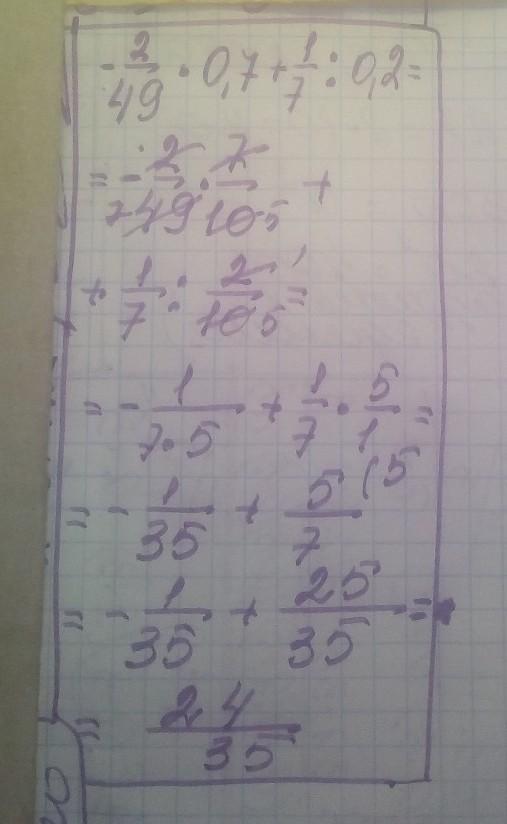 - 2/49 · 0,7 + 1/7 : 0,2 =
= - 2/49 · 7/10 +
7 5
+ 1/7 : 2/10 =
1 5
= - 1/7·5 + 1/7 · 5/1 =
= - 1/35 + 5/7 (5
= - 1/35 + 25/35 =
= 24/35